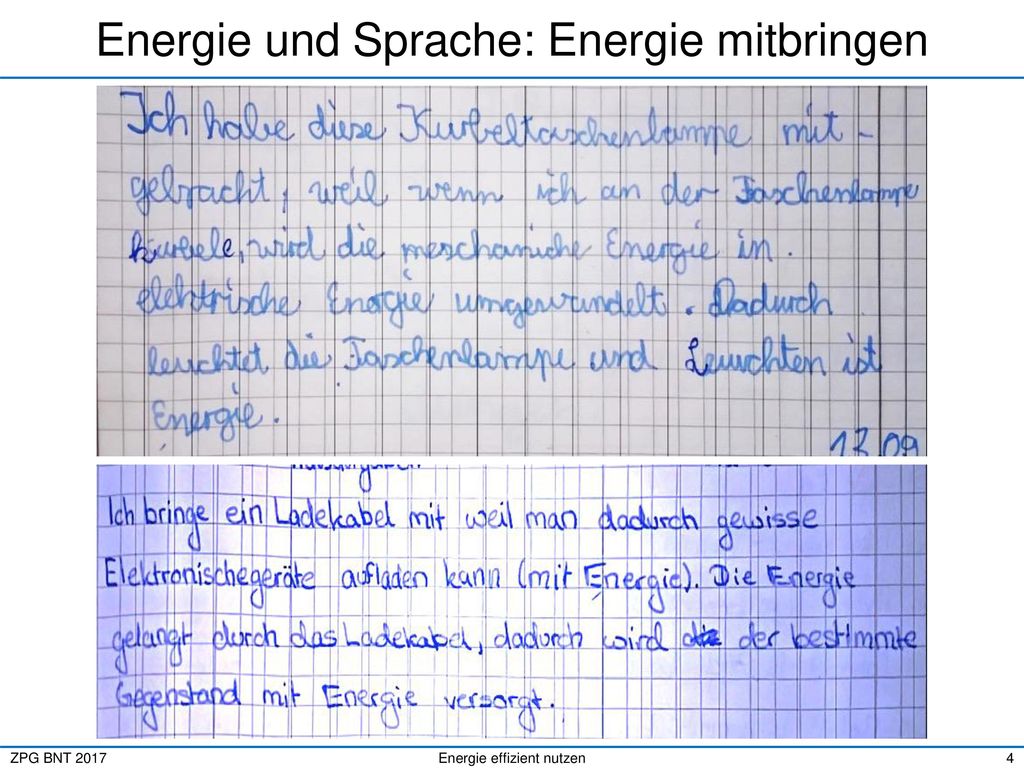 Energie und Sprache: Energie mitbringen
Ich habe diese Kurbeltaschenlampe mit-
gebracht, weil wenn ich an der Taschenlampe
kurbele, wird die meschaniche Energie in
elektrische Energie umgewandelt. Dadurch
leuchtet die Taschenlampe und Leuchten ist
Energie.
13.09
Ich bringe ein Ladekabel mit weil man dadurch gewisse
Elektronischegeräte aufladen kann (mit Energie). Die Energie
gelangt durch das Ladekabel, dadurch wird der bestimmte
Gegenstand mit Energie versorgt.
ZPG BNT 2017 Energie effizient nutzen 4